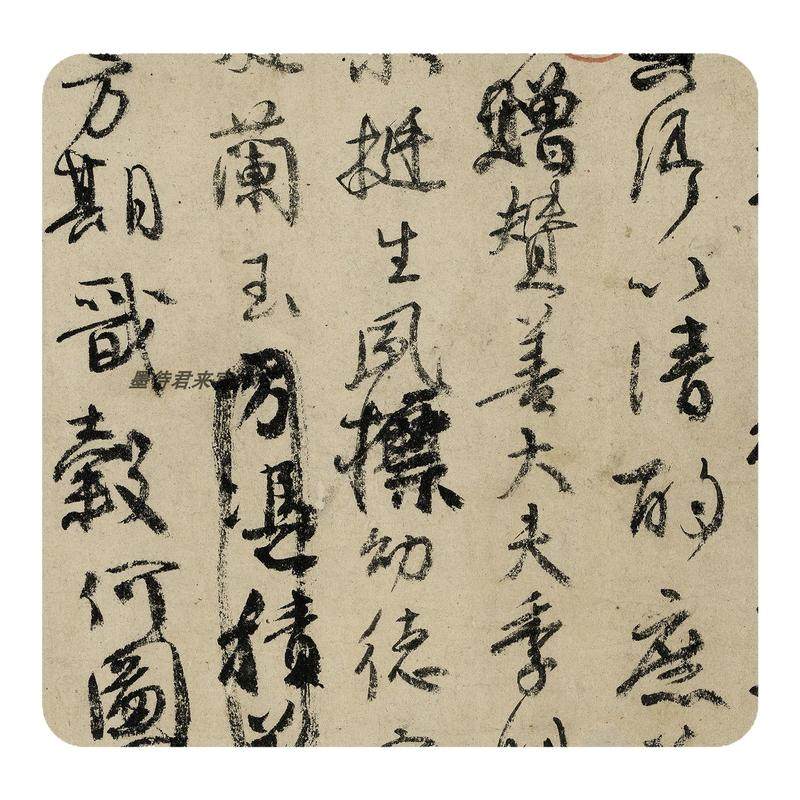 卿以清酌庶
贈贊善大夫季
挺生夙標幼德
蘭玉方憑積
方期戩穀何圖
墨侍君来